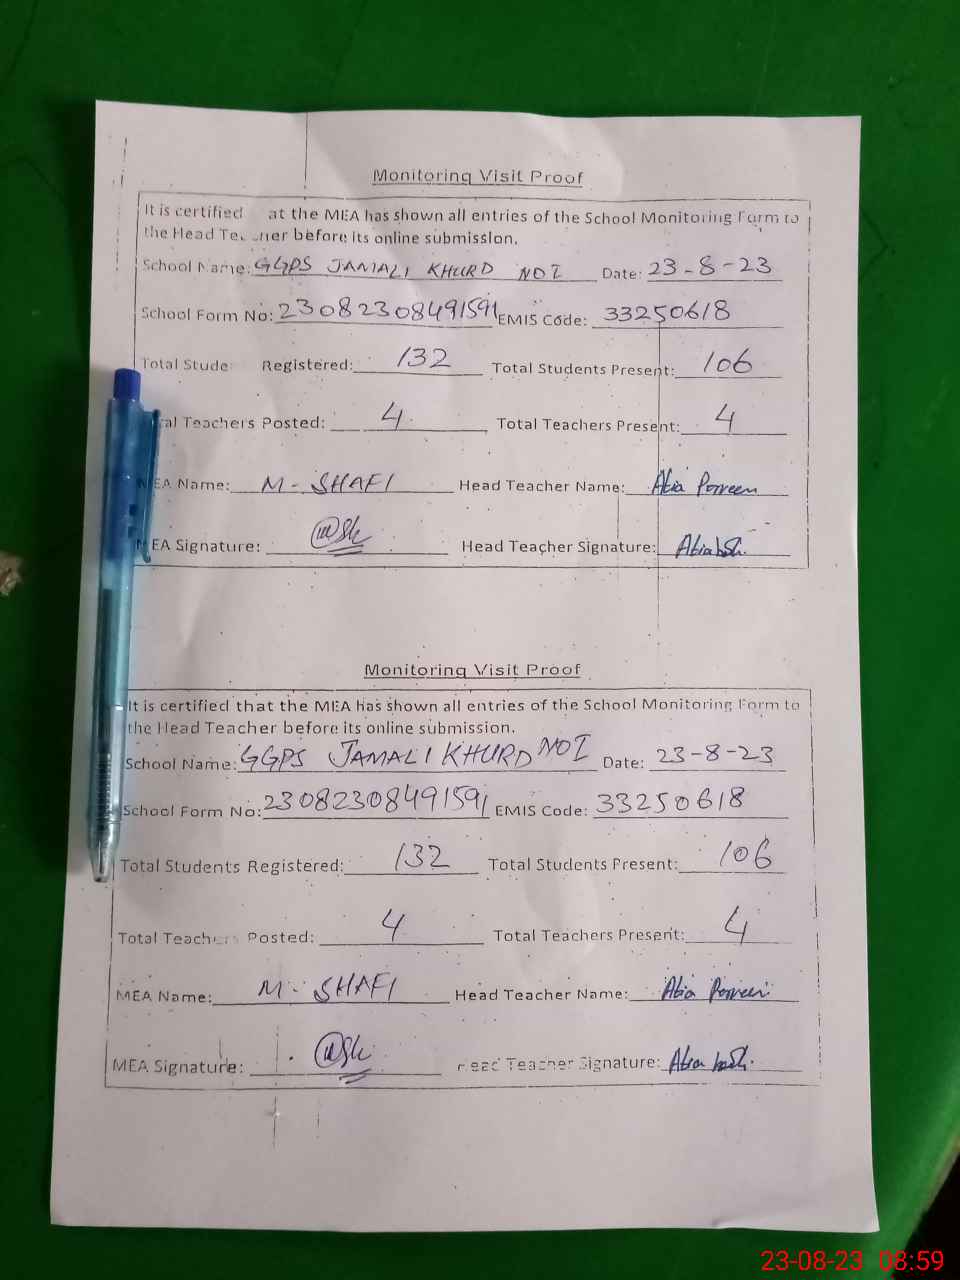 Monitoring Visit Proof
It is certified at the MEA has shown all entries of the School Monitoring Form to
the Head Te cher before its online submission.
School Name: GGPS JAMALI KHURD NO I Date: 23-8-23
School Form No: 23082308491591 EMIS Code: 33250618
Total Stude Registered: 132 Total Students Present: 106
al Teachers Posted: 4 Total Teachers Present: 4
MEA Name: M-SHAFI Head Teacher Name: Abia Parveen
MEA Signature: Head Teacher Signature:
Monitoring Visit Proof
It is certified that the MEA has shown all entries of the School Monitoring Form to
the Head Teacher before its online submission.
School Name: GGPS JAMALI KHURD NO I Date: 23-8-23
School Form No: 23082308491591 EMIS Code: 33250618
Total Students Registered: 132 Total Students Present: 106
Total Teachers Posted: 4 Total Teachers Present: 4
MEA Name: M-SHAFI Head Teacher Name: Abia Parveen
MEA Signature: Head Teacher Signature:
23-08-23 08:59